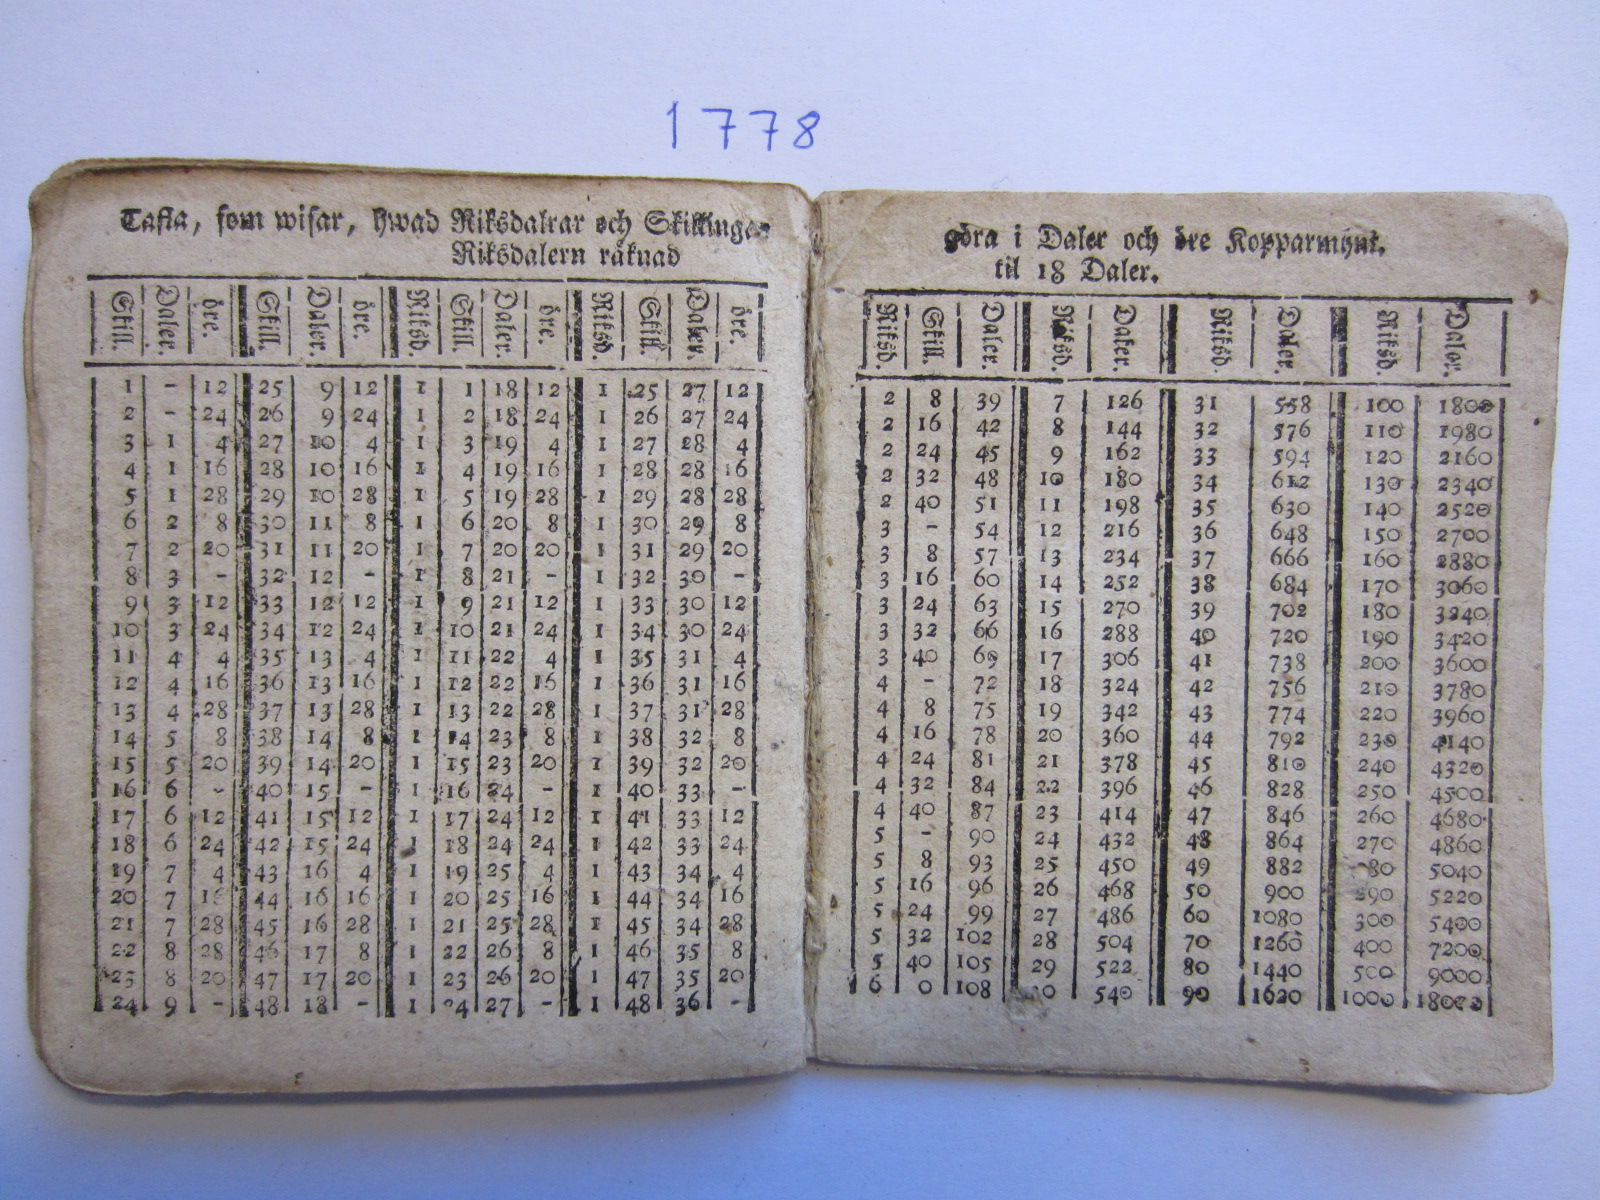 1778
Tafla, som wisar, hwad Riksdalrar och Skillingar
Riksdalern råknad
Skill. Daler. öre. Skill. Daler. öre. Riksd. Skill. Daler. öre. Riksd. Skill. Daler. öre.
1 - 12 25 9 12 1 1 18 12 1 25 27 12
2 - 24 26 9 24 1 2 18 24 1 26 27 24
3 1 4 27 10 4 1 3 19 4 1 27 28 4
4 1 16 28 10 16 1 4 19 16 1 28 28 16
5 1 28 29 10 28 1 5 19 28 1 29 28 28
6 2 8 30 11 8 1 6 20 8 1 30 29 8
7 2 20 31 11 20 1 7 20 20 1 31 29 20
8 3 - 32 12 - 1 8 21 - 1 32 30 -
9 3 12 33 12 12 1 9 21 12 1 33 30 12
10 3 24 34 12 24 1 10 21 24 1 34 30 24
11 4 4 35 13 4 1 11 22 4 1 35 31 4
12 4 16 36 13 16 1 12 22 16 1 36 31 16
13 4 28 37 13 28 1 13 22 28 1 37 31 28
14 5 8 38 14 8 1 14 23 8 1 38 32 8
15 5 20 39 14 20 1 15 23 20 1 39 32 20
16 6 - 40 15 - 1 16 24 - 1 40 33 -
17 6 12 41 15 12 1 17 24 12 1 41 33 12
18 6 24 42 15 24 1 18 24 24 1 42 33 24
19 7 4 43 16 4 1 19 25 4 1 43 34 4
20 7 16 44 16 16 1 20 25 16 1 44 34 16
21 7 28 45 16 28 1 21 25 28 1 45 34 28
22 8 28 46 17 8 1 22 26 8 1 46 35 8
23 8 20 47 17 20 1 23 26 20 1 47 35 20
24 9 - 48 18 - 1 24 27 - 1 48 36 -
göra i Daler och öre Kopparmynt.
til 18 Daler.
Riksd. Skill. Daler. Riksd. Daler. Riksd. Daler. Riksd. Daler.
2 8 39 7 126 31 558 100 1800
2 16 42 8 144 32 576 110 1980
2 24 45 9 162 33 594 120 2160
2 32 48 10 180 34 612 130 2340
2 40 51 11 198 35 630 140 2520
3 - 54 12 216 36 648 150 2700
3 8 57 13 234 37 666 160 2880
3 16 60 14 252 38 684 170 3060
3 24 63 15 270 39 702 180 3240
3 32 66 16 288 40 720 190 3420
3 40 69 17 306 41 738 200 3600
4 - 72 18 324 42 756 210 3780
4 8 75 19 342 43 774 220 3960
4 16 78 20 360 44 792 230 4140
4 24 81 21 378 45 810 240 4320
4 32 84 22 396 46 828 250 4500
4 40 87 23 414 47 846 260 4680
5 - 90 24 432 48 864 270 4860
5 8 93 25 450 49 882 280 5040
5 16 96 26 468 50 900 290 5220
5 24 99 27 486 60 1080 300 5400
5 32 102 28 504 70 1260 400 7200
5 40 105 29 522 80 1440 500 9000
6 0 108 30 540 90 1620 1000 18000